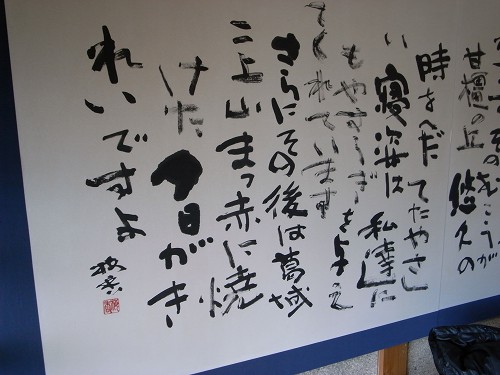 そのむこうが
甘樫の丘 悠久の
時をへだてたやさし
い寝姿は私達に
もやすらぎを与え
てくれています
さらにその後は葛城
二上山まっ赤に焼
けた夕日がき
れいですよ